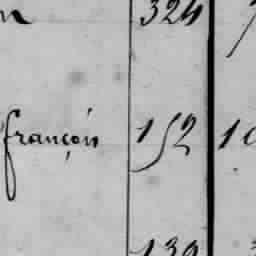 n 324 7
françois 152 10
139